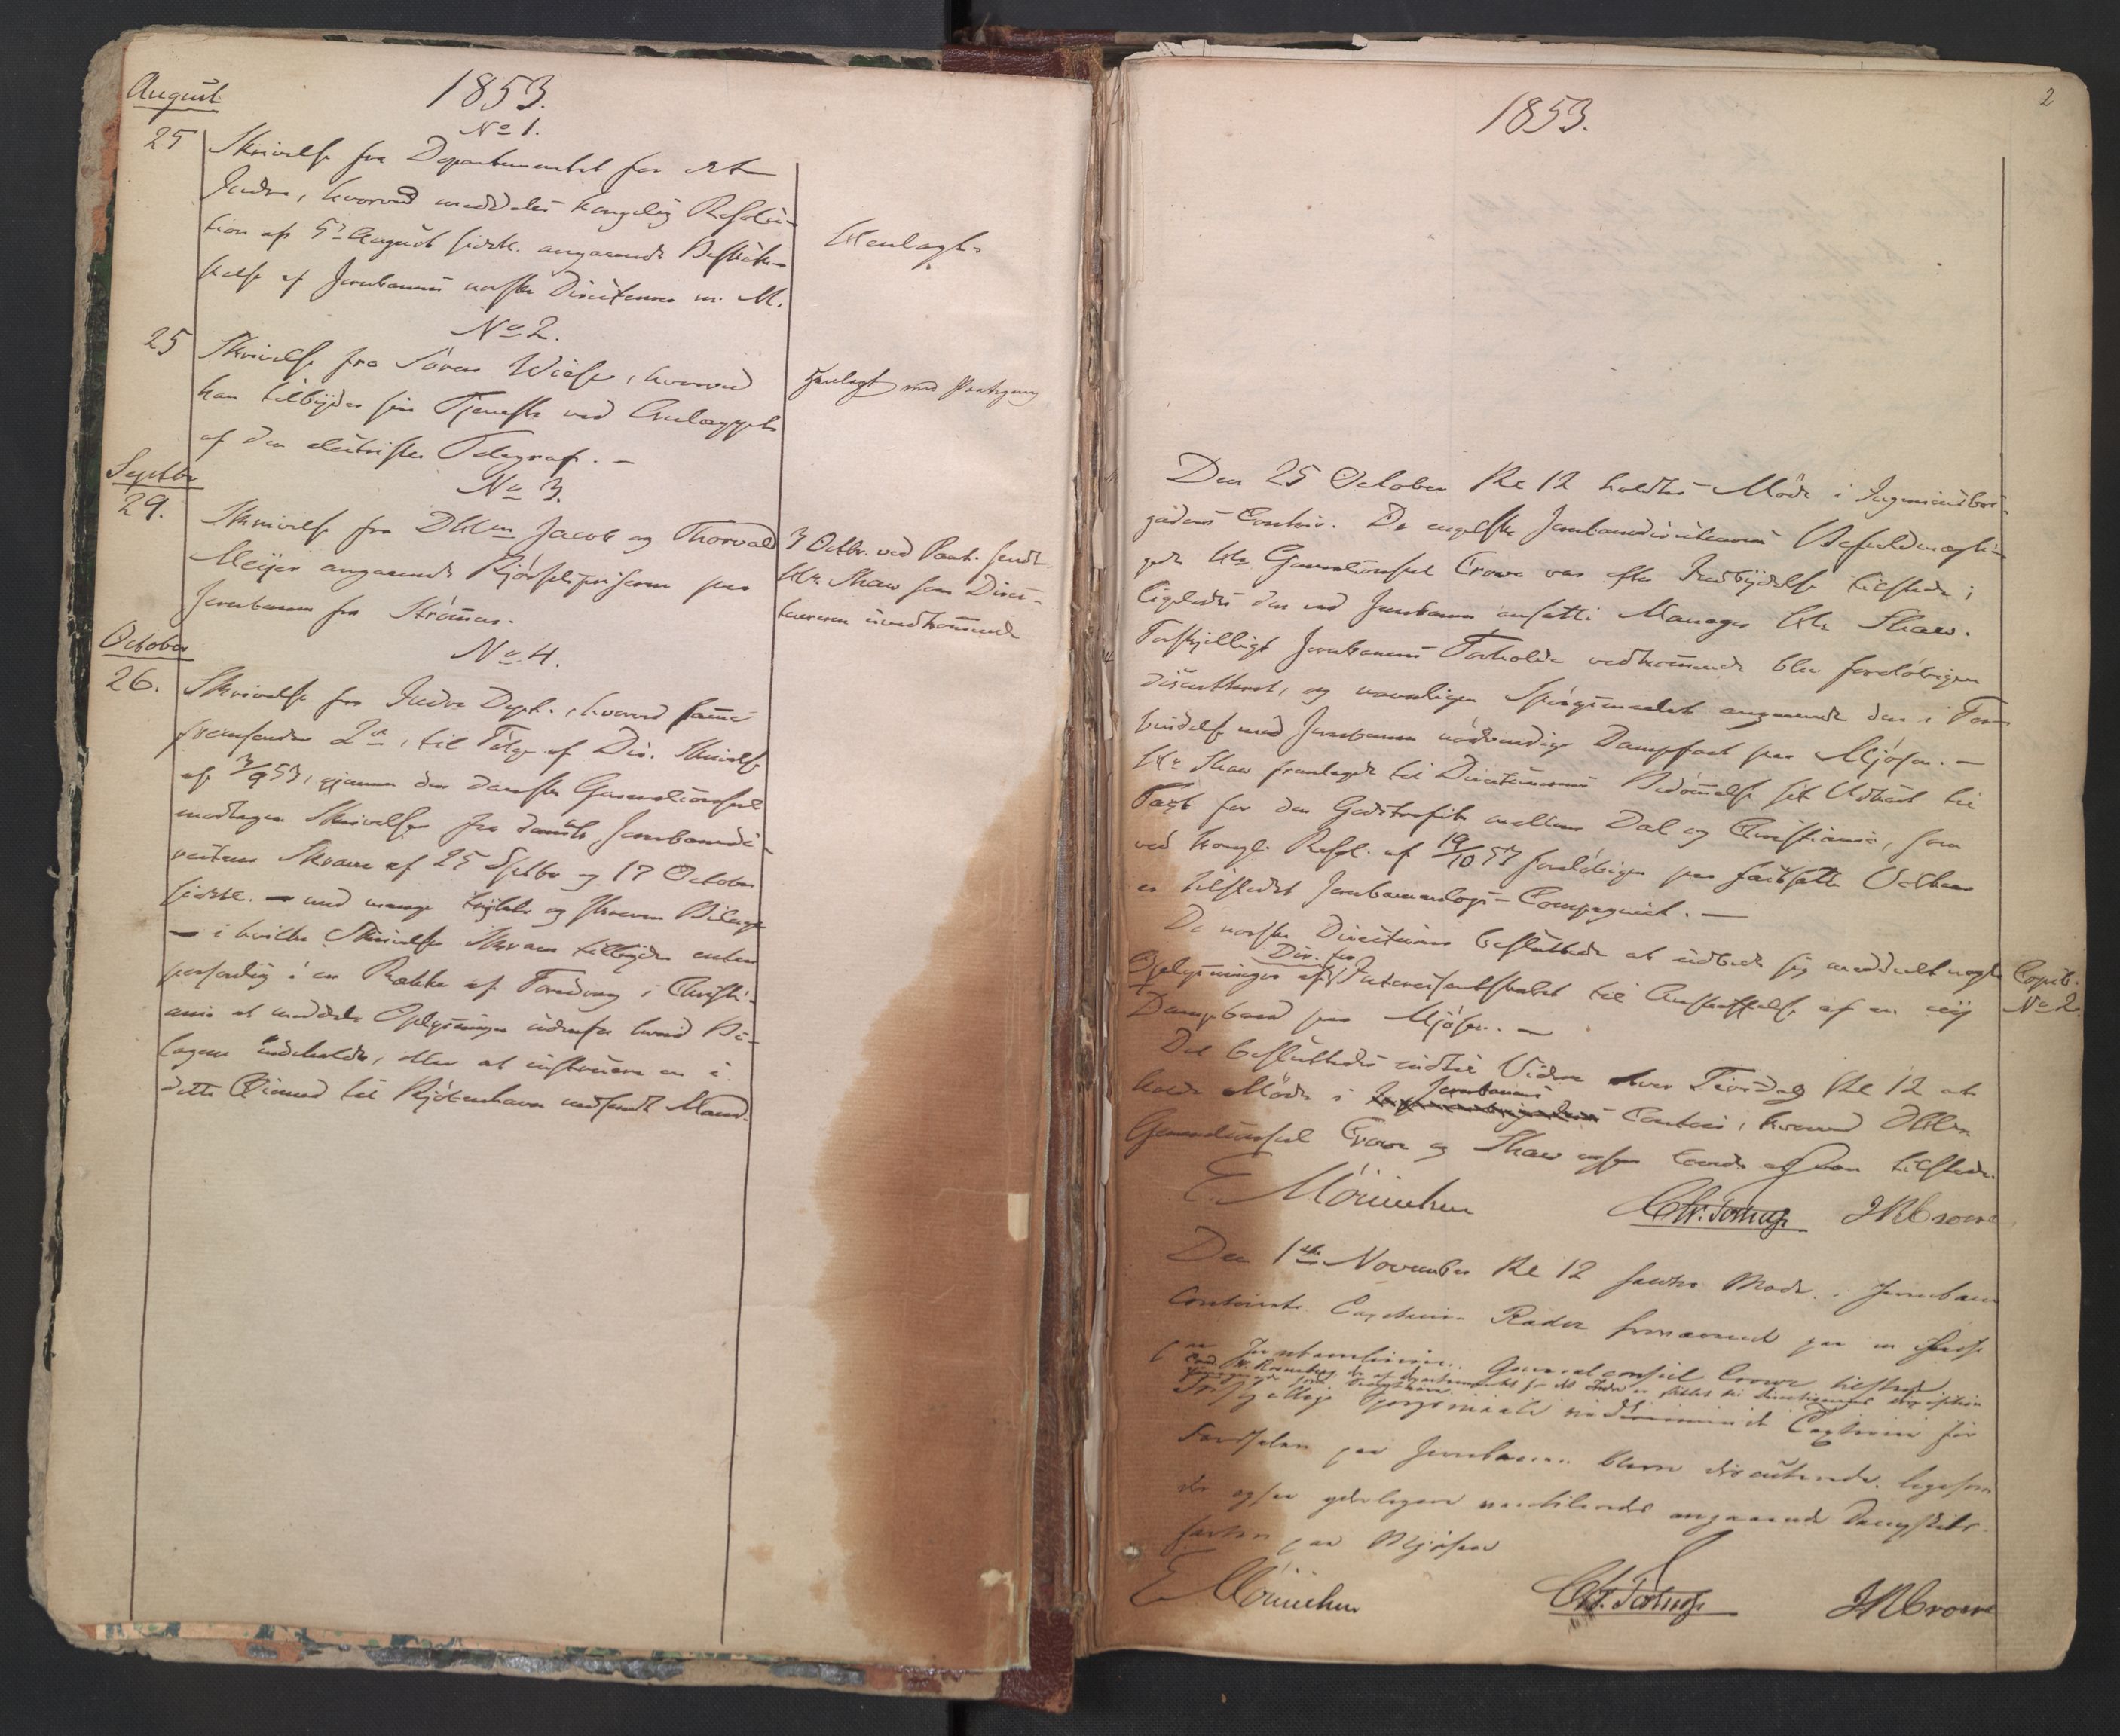 1853.
August
No 1.
25 Skrivelse fra Departementet for det
Indre, hvorved meddeles kongelig Resolu-
tion af 5te August sidstl. angaaende Beskik-
kelse af Jernbanens norske Directeurer m. M.
Henlagt.
No 2.
25 Skrivelse fra Søren Wiese, hvorved
han tilbyder sin Tjeneste ved Anlægget
af den electriske Telegraf. —
Henlagt med Paategning
Septbr
No 3.
29. Skrivelse fra DHrr Jacob og Thorvald
Meijer angaaende Kjørselspriserne paa
Jernbanen fra Strømen.
3 Octbr. ved Paat. sendt
Hr. Shaw som Direc-
teurerne uvedkommende
October
No 4.
26. Skrivelse fra Indre Dept., hvorved samme
fremsender 2de, til Følge af Dir. Skrivelse
af 3/9 53, gjennem den danske Generalconsul
modtagne Skrivelser fra dansk Jernbanedi-
recteur Skram af 25 Septbr og 17 October
sidstl. — med mange trykte og skrevne Bilage
— i hvilke Skrivelser Skram tilbyder enten
personlig i en Række af Foredrag i Christi-
ania at meddele Oplysninger udenfor hvad Bi-
lagene indeholde, eller at instruere en i
dette Øiemed til Kjøbenhavn nedsendt Mand.
2
1853.
Den 25 October Kl 12 holdtes Møde i Ingenieurbri-
gadens Contoir. De engelske Jernbanedirecteurers Befuldmægti-
gede Hr Generalconsul Crowe var efter Indbydelse tilstede;
ligeledes den ved Jernbanen ansatte Manager Hr Shaw.
Forskjelligt Jernbanens Forholde vedkommende blev foreløbigen
discutteret, og navnligen Spørgsmaalet angaaende den i For-
bindelse med Jernbanen nødvendige Dampfart paa Mjøsen. —
Hr Shaw fremlagde til Directeurernes Bedømmelse sit Udkast til
Taxt for den Godstrafik mellem Dal og Christiania, som
ved kongl. Resol. af 19/10 53 foreløbigen paa fastsatte Vilkaar
er tilstedet Jernbaneanlægs-Compagniet. —
De norske Directeurer besluttede at udbede sig meddelt nogle
Oplysninger af Dir. for Interessentskabet til Anskaffelse af en ny
Dampbaad paa Mjøsen. —
Copib.
No 2.
Det besluttedes indtil Videre hver Tirsdag Kl 12 at
holde Møde i Jernbanens Contoir, hvorved DHrr
Generalconsul Crowe og Shaw ogsaa lovede at være tilstede.
E. Mørinchen Chr. Tostrup JRCrowe
Den 1ste November Kl 12 holdtes Møde i Jernbane
Contoiret. Capitain Rader fraværende paa en Reise
paa Jernbanelinien. Generalconsul Crowe tilstede
Cand. Rosenberg der af Departementet for det Indre er stillet til Directionens Disposition
Forskjellige Spørgsmaale vedkommende Taxten for
Færdselen paa Jernbanen bleve discuterede, ligesom
der ogsaa yderligere angaaende Dampskibs-
farten paa Mjøsen
E Mørinchen Chr. Tostrup JRCrowe